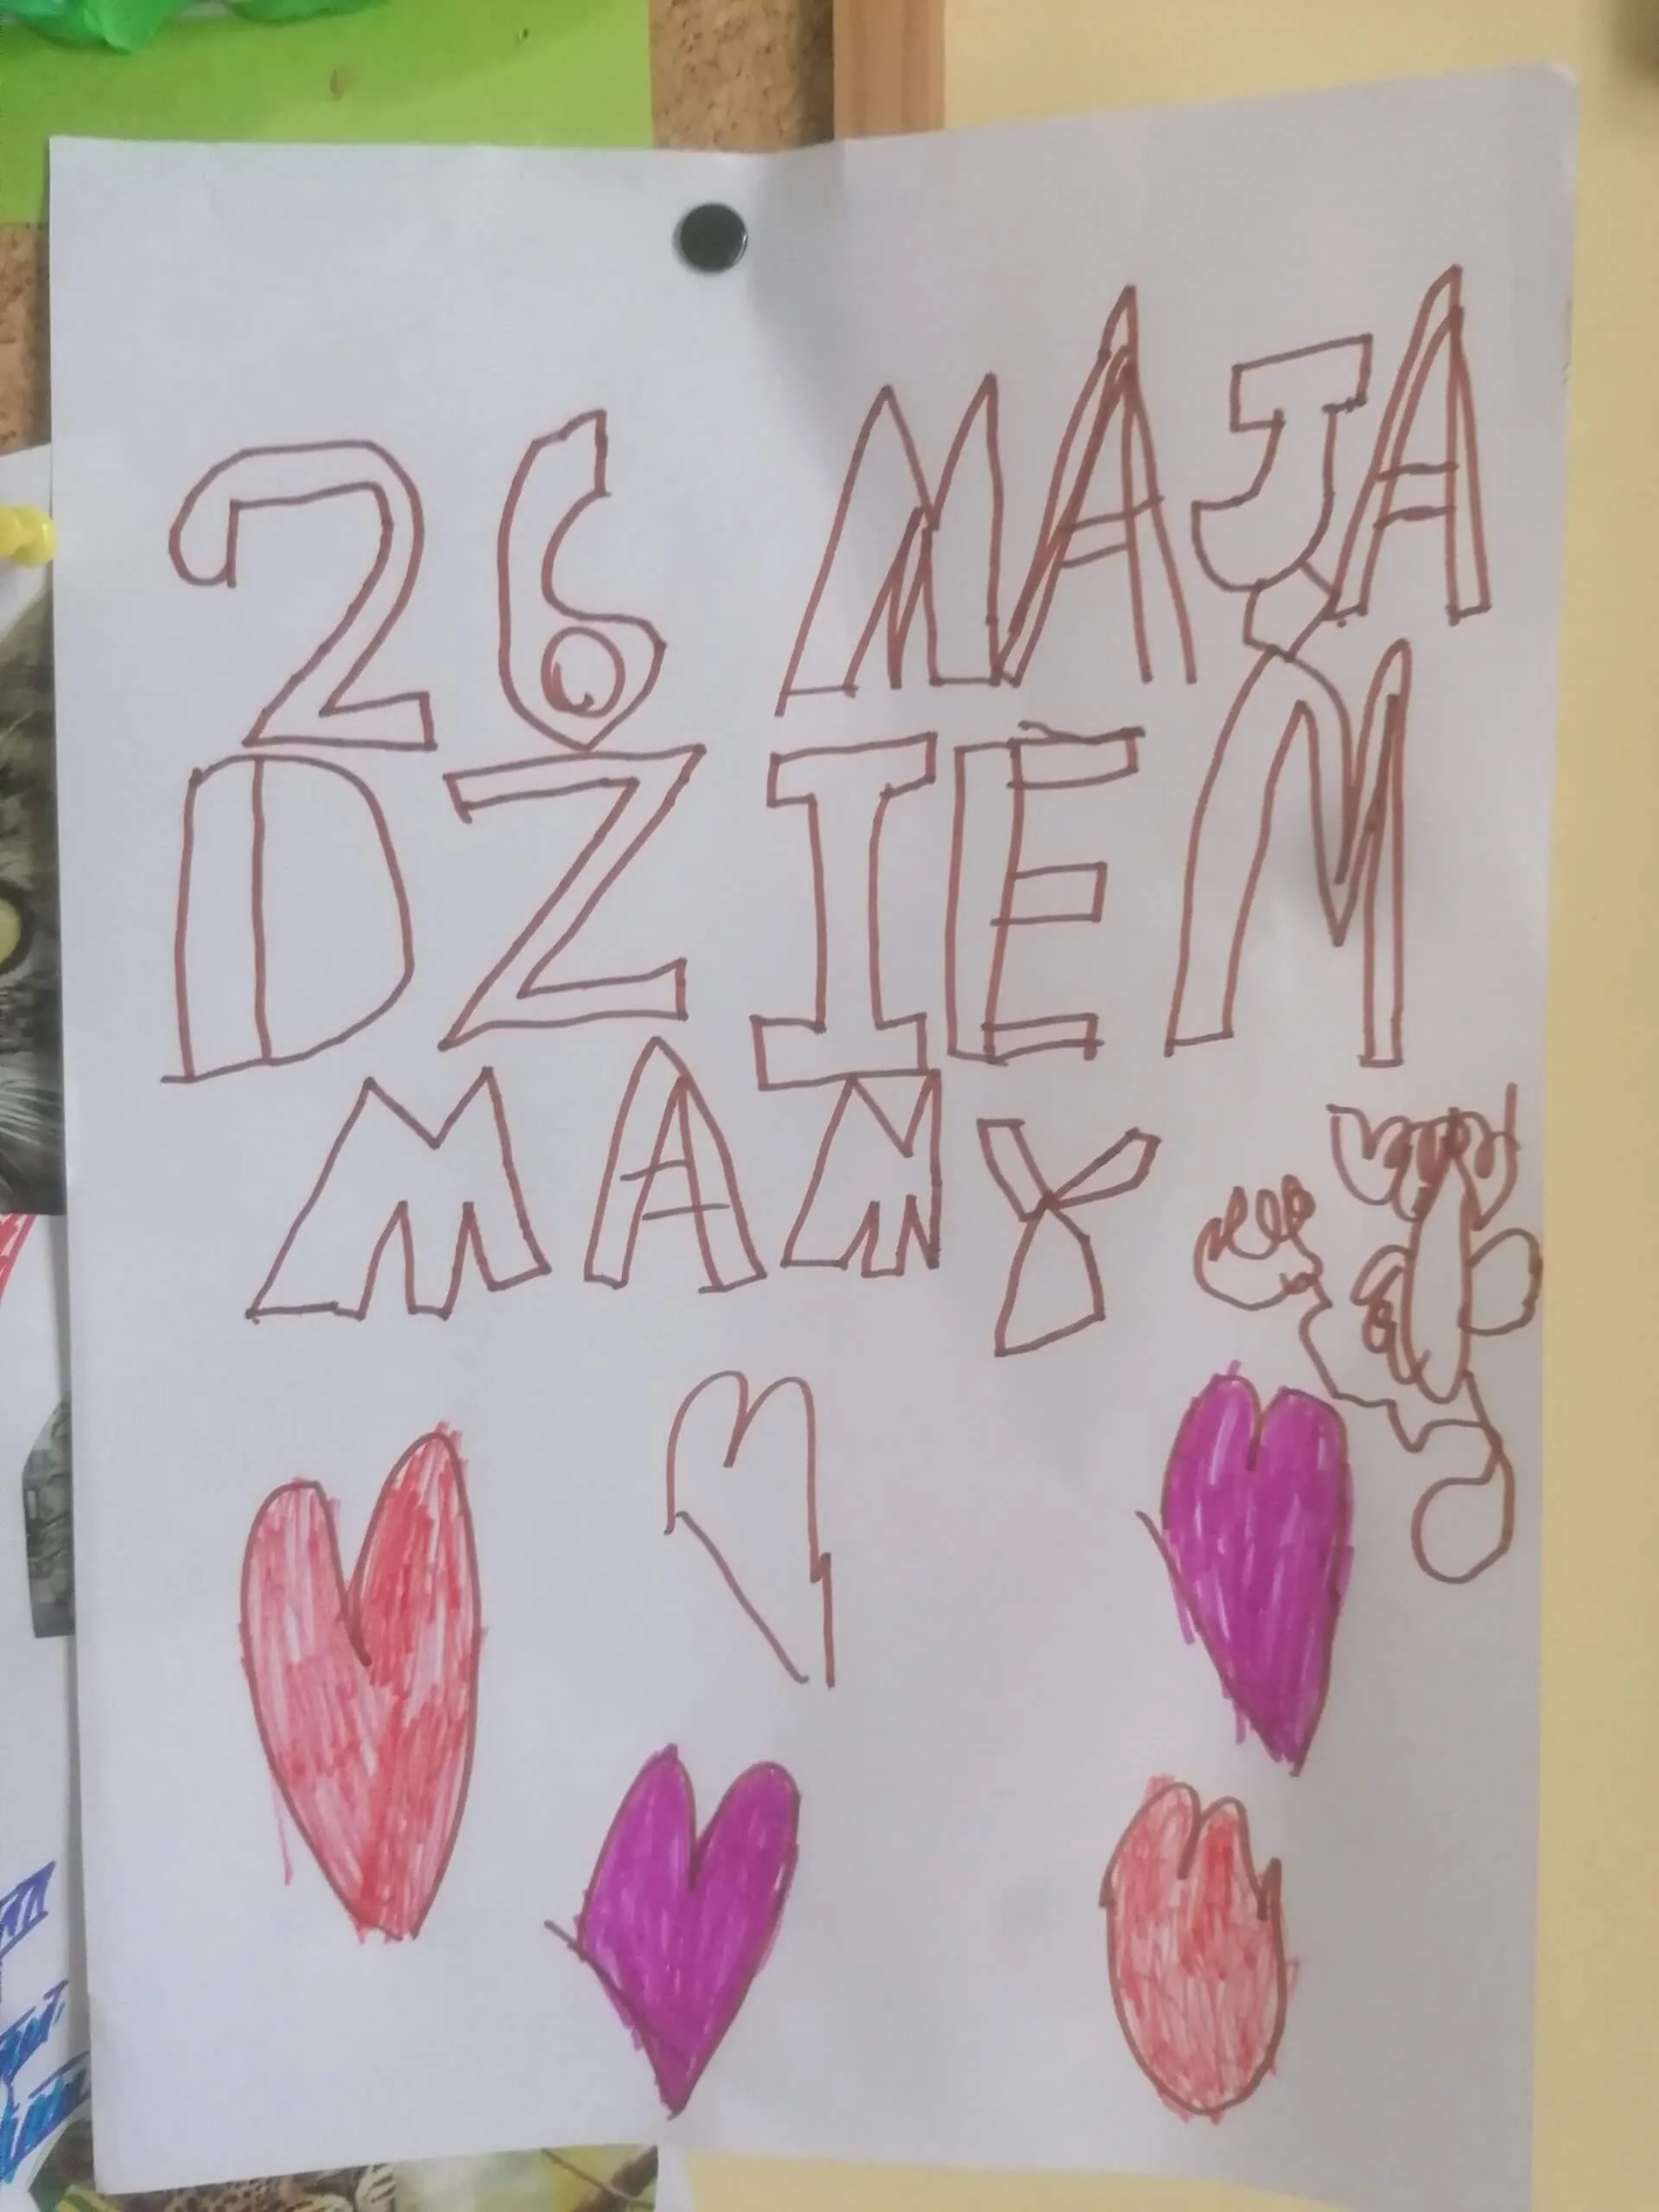 26 MAJA
DZIEḾ
MAMY